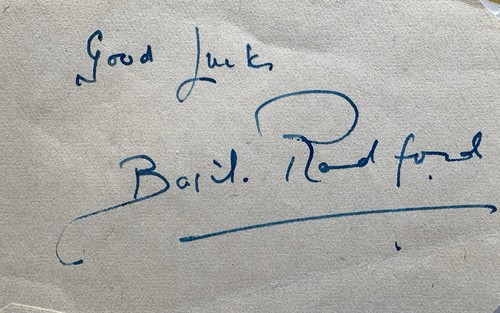 Good Luck
Basil. Radford